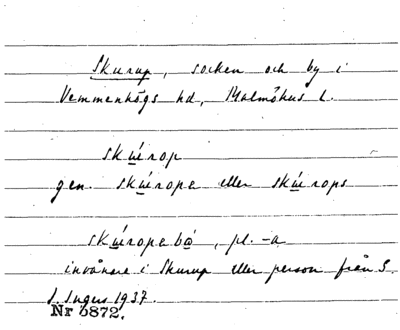 Skurup, socken och by i
Vemmenhögs hd, Malmöhus l.
skúrop
gen. skúrope eller skúrops
skúropebo, pl. -a
invånare i Skurup eller person från S.
I. Ingers 1937.
Nr 5872.